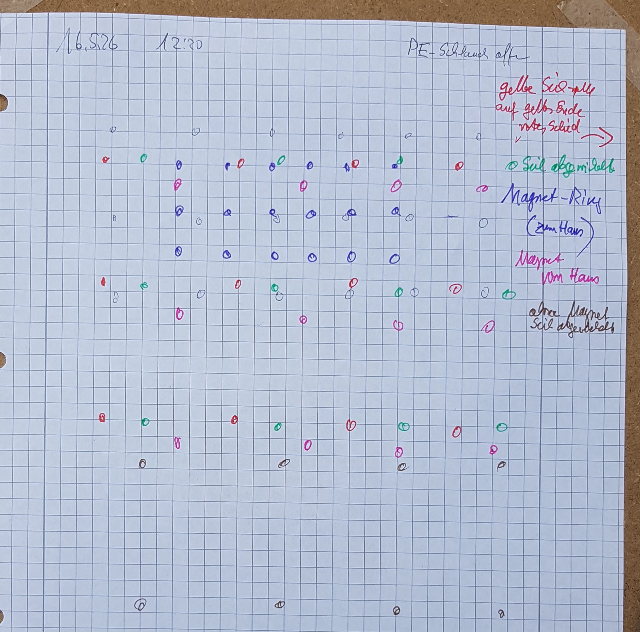 16.5.26 12:20 PE-Schlauch offen
gelbe
auf gelbes Ende
Seil abgewickelt
Magnet-Ring
(zum Haus)
Magnet
vom Haus
ohne Magnet
Seil abgewickelt